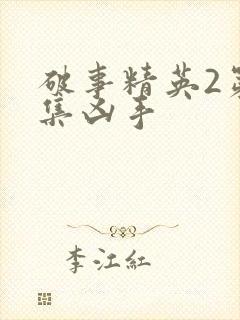 破事精英2第
集凶手
李江紅